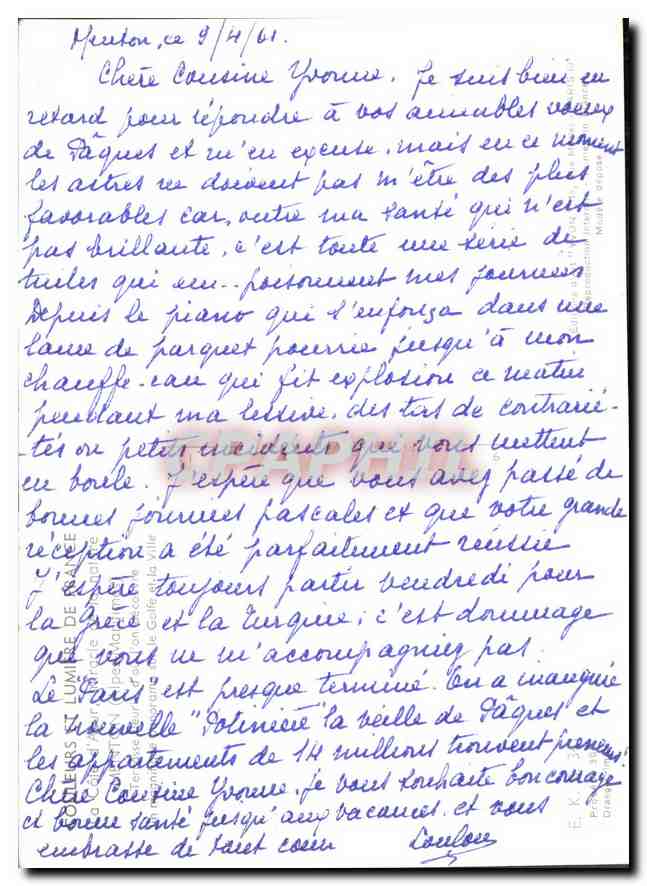 Menton, ce 9/4/61.
Chère Cousine Yvonne, Je suis bien en
retard pour répondre à vos aimables voeux
de Pâques et m'en excuse, mais en ce moment
les astres ne doivent pas m'être des plus
favorables car, outre ma santé qui n'est
pas brillante, c'est toute une série de
tuiles qui em.. poisonnent mes journées
Depuis le piano qui s'enfonça dans une
lame de parquet pourrie jusqu'à mon
chauffe-eau qui fit explosion ce matin
pendant ma lessive, des tas de contrarié-
-tés ou petits incidents que vous mettent
en boule. J'espère que vous avez passé de
bonnes journées pascales et que votre grande
réception a été parfaitement réussie
J'espère toujours partir vendredi pour
la Grèce et la Turquie ; c'est dommage
que vous ne m'accompagniez pas.
Le Paris est presque terminé. On a inauguré
la nouvelle "Potinière" la veille de Pâques et
les appartements de 14 millions trouvent preneurs!
Chère Cousine Yvonne, je vous souhaite bon courage
et bonne santé jusqu'aux vacances, et vous
embrasse de tout coeur Loulou
COULEURS ET LUMIERE DE FRANCE
La Côte d'Azur, miracle de la nature
MENTON (Alpes-Maritimes)
le Golfe et la Ville
E. K. 3